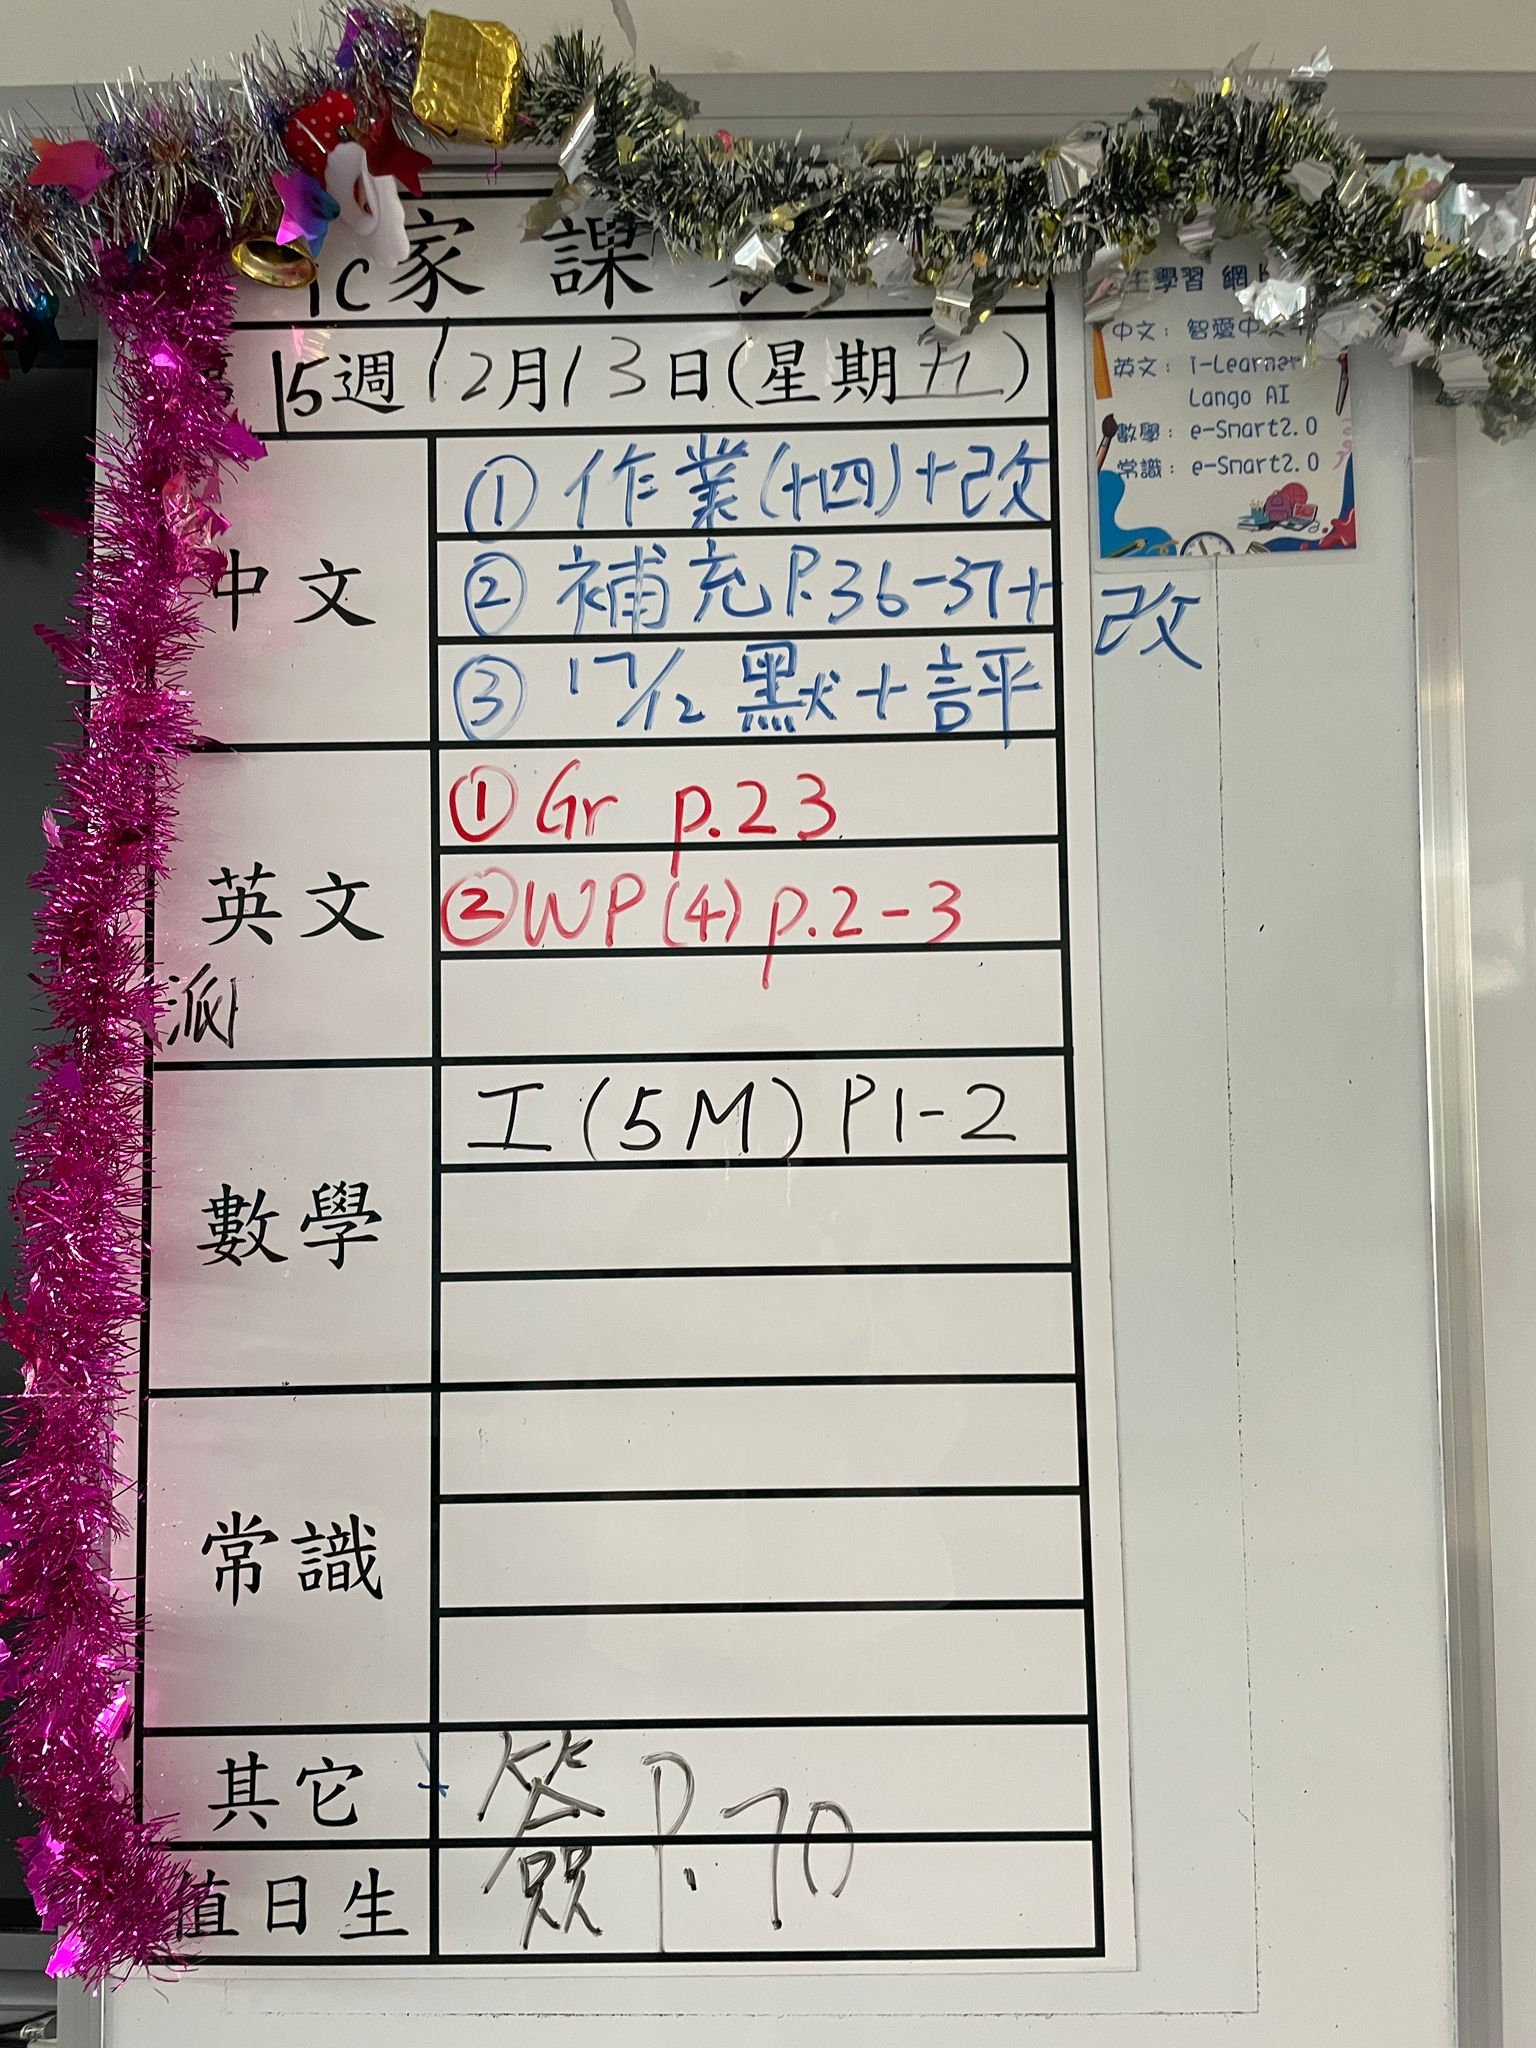 c家課
15週12月13日(星期五)
中文
①作業(十四)+改
②補充P.36-37+改
③17/12默+評
英文
①Gr p.23
②WP(4)p.2-3
派
數學
工(5M)P1-2
常識
其它
簽P.70
值日生
主學習 網
中文：智愛中文
英文：I-Learner
Lango AI
數學：e-Smart2.0
常識：e-Smart2.0